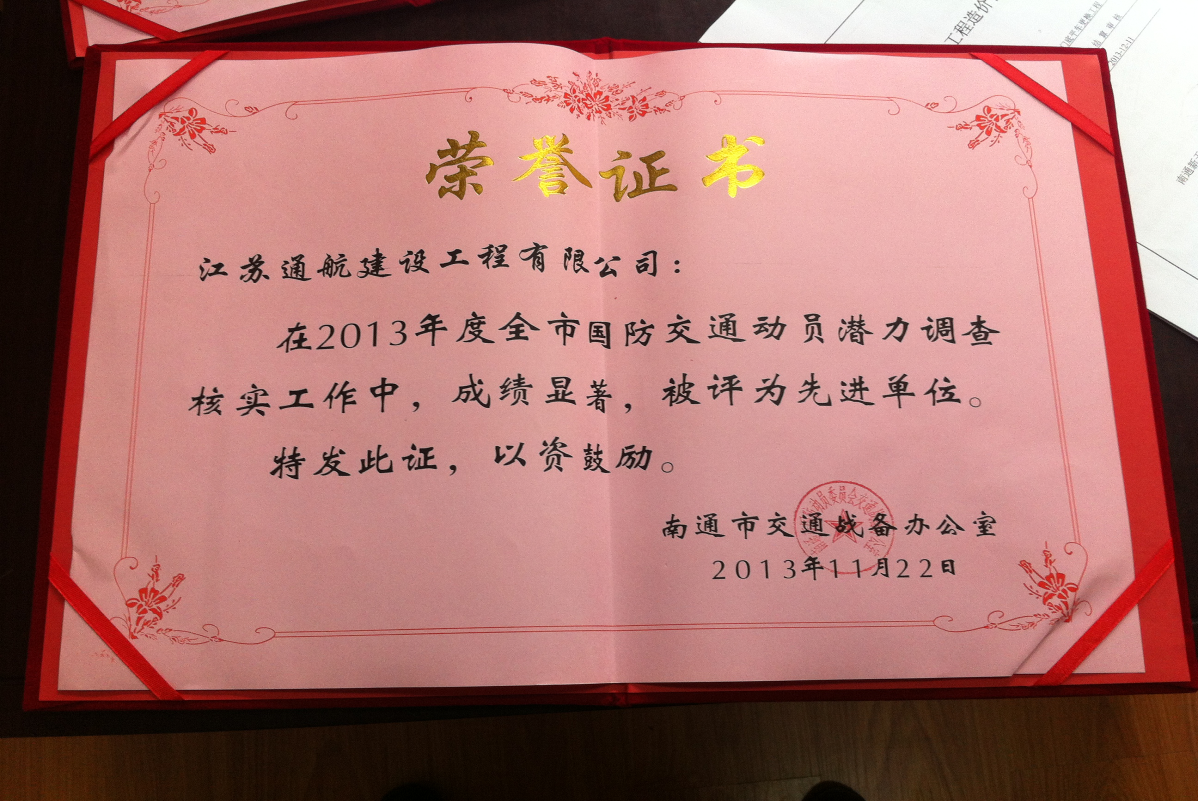 荣誉证书
江苏通航建设工程有限公司：
在2013年度全市国防交通动员潜力调查
核实工作中，成绩显著，被评为先进单位。
特发此证，以资鼓励。
南通市交通战备办公室
2013年11月22日
工程造价
结算审核
2013-12-11